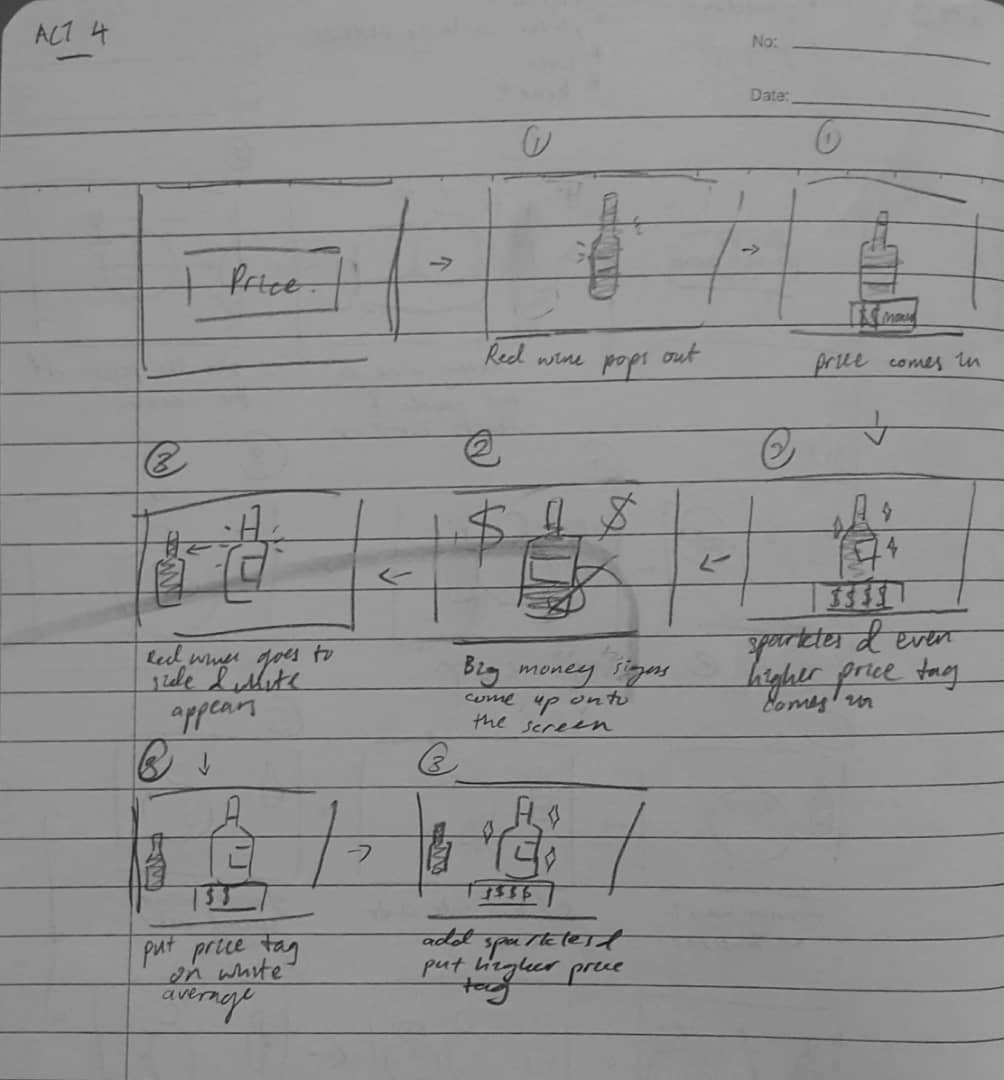 ACT 4
No:
Date:
1
1
Price.
$$ money
Red wine pops out
price comes in
3
2
2
$
$
$$$$
Red wine goes to
side & white
appears
Big money signs
come up onto
the screen
sparkles & even
higher price tag
comes in
3
3
$$
$$$$
put price tag
on white
average
add sparkles &
put higher price
tag